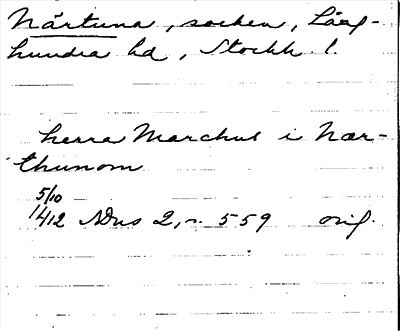 Närtuna, socken, Lång-
hundra hd, Stockh. l.
herra Marchus i Nær-
thunom
5/10
1412 SDns 2, n. 559 orig.